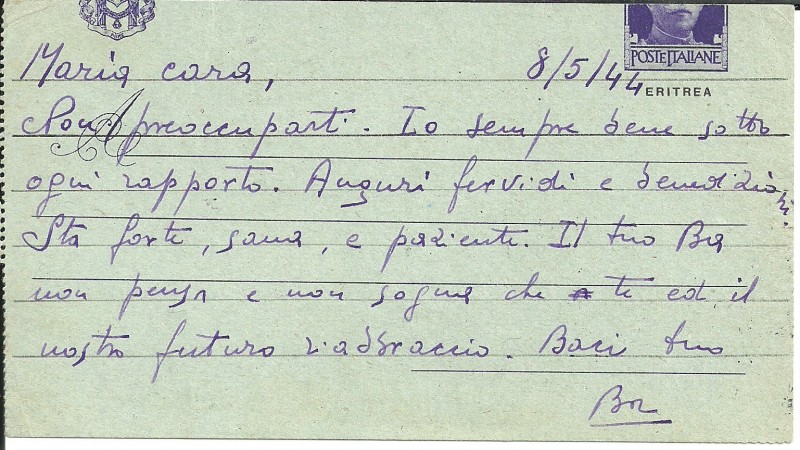 POSTE ITALIANE
ERITREA
Maria cara, 8/5/44
Non preoccuparti. Io sempre bene sotto
ogni rapporto. Auguri fervidi e benedizioni.
Sta forte, sana, e paziente. Il tuo Ba
non pensa e non sogna che te ed il
nostro futuro riabbraccio. Baci tuo
Ba